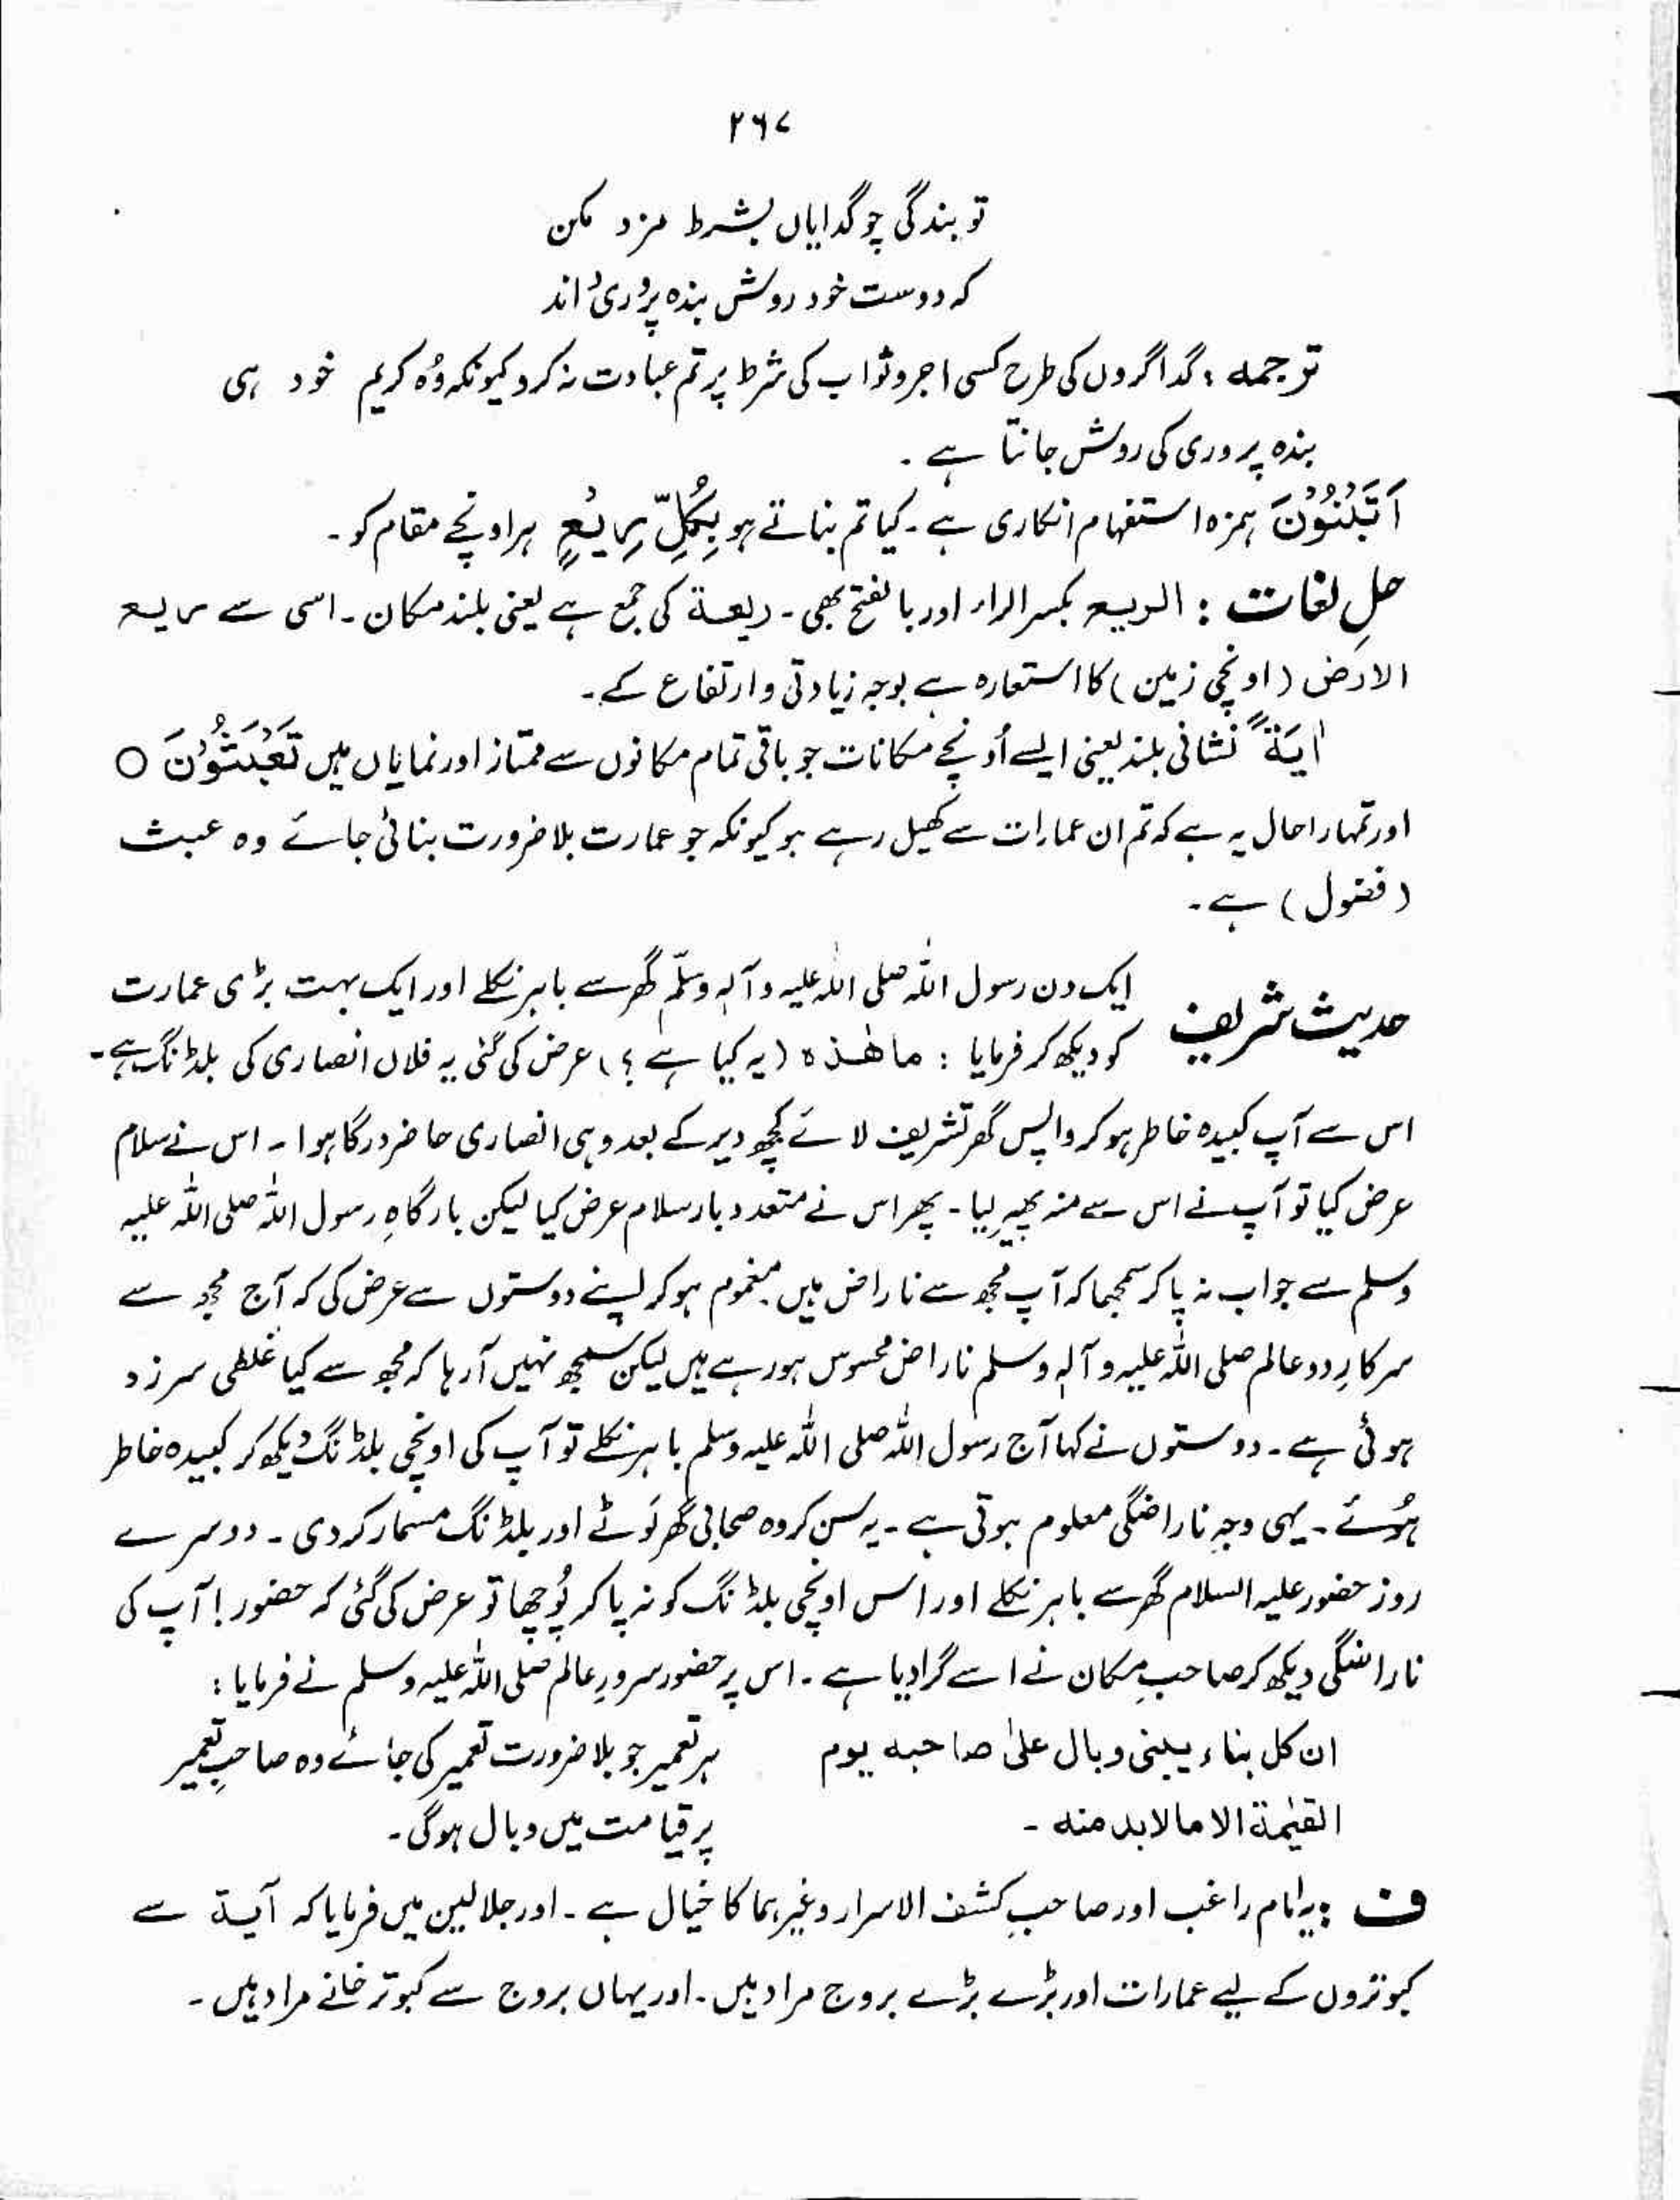 ۲۶۷
تو بندگی چو گدایاں بشرط مزد مکن
که دوست خود روش بنده پروری اند
ترجمہ : گداگروں کی طرح کسی اجر و ثواب کی شرط پر تم عبادت نہ کرو کیونکہ وُہ کریم خود ہی
بندہ پروری کی روش جانتا ہے ۔
اَتَبْنُوْنَ ہمزہ استفہام انکاری ہے ۔ کیا تم بناتے ہو بِكُلِّ رِيْعٍ ہر اونچے مقام کو ۔
حلِ لغات : الریع بکسر الراء اور بالفتح بھی ۔ ریعۃ کی جمع ہے یعنی بلند مکان ۔ اسی سے ریع
الارض ( اونچی زمین ) کا استعارہ ہے بوجہ زیادتی و ارتفاع کے ۔
اٰيَةً نشانی بلند یعنی ایسے اُونچے مکانات جو باقی تمام مکانوں سے ممتاز اور نمایاں ہیں تَعْبَثُوْنَ ○
اور تمہارا حال یہ ہے کہ تم ان عمارات سے کھیل رہے ہو کیونکہ جو عمارت بلا ضرورت بنائی جائے وہ عبث
( فضول ) ہے ۔
حدیث شریف ایک دن رسول اللہ صلی اللہ علیہ وآلہٖ وسلّم گھر سے باہر نکلے اور ایک بہت بڑی عمارت
کو دیکھ کر فرمایا : ما ھٰذہ ( یہ کیا ہے ؟ ) عرض کی گئی یہ فلاں انصاری کی بلڈنگ ہے ۔
اس سے آپ کبیدہ خاطر ہو کر واپس گھر تشریف لائے کچھ دیر کے بعد وہی انصاری حاضر درگاہ ہوا ۔ اس نے سلام
عرض کیا تو آپ نے اس سے منہ پھیر لیا ۔ پھر اس نے متعدد بار سلام عرض کیا لیکن بارگاہِ رسول اللہ صلی اللہ علیہ
وسلم سے جواب نہ پا کر سمجھا کہ آپ مجھ سے ناراض ہیں مغموم ہو کر اپنے دوستوں سے عرض کی کہ آج مجھ سے
سرکارِ دو عالم صلی اللہ علیہ و آلہٖ وسلم ناراض محسوس ہو رہے ہیں لیکن سمجھ نہیں آ رہا کہ مجھ سے کیا غلطی سرزد
ہوئی ہے ۔ دوستوں نے کہا آج رسول اللہ صلی اللہ علیہ وسلم باہر نکلے تو آپ کی اونچی بلڈنگ دیکھ کر کبیدہ خاطر
ہُوئے ۔ یہی وجہِ ناراضگی معلوم ہوتی ہے ۔ یہ سن کر وہ صحابی گھر لَوٹے اور بلڈنگ مسمار کر دی ۔ دوسرے
روز حضور علیہ السلام گھر سے باہر نکلے اور اس اونچی بلڈنگ کو نہ پا کر پُوچھا تو عرض کی گئی کہ حضور ! آپ کی
ناراضگی دیکھ کر صاحبِ مکان نے اسے گرا دیا ہے ۔ اس پر حضور سرورِ عالم صلی اللہ علیہ وسلم نے فرمایا :
ان کل بناء یبنی وبال علیٰ صاحبہ یوم ہر تعمیر جو بلا ضرورت تعمیر کی جائے وہ صاحبِ تعمیر
القیٰمۃ الا ما لا بد منہ ۔ پر قیامت میں وبال ہوگی ۔
ف : یہ امام راغب اور صاحبِ کشف الاسرار وغیرہما کا خیال ہے ۔ اور جلالین میں فرمایا کہ آیۃ سے
کبوتروں کے لیے عمارات اور بڑے بڑے بروج مراد ہیں ۔ اور یہاں بروج سے کبوتر خانے مراد ہیں ۔